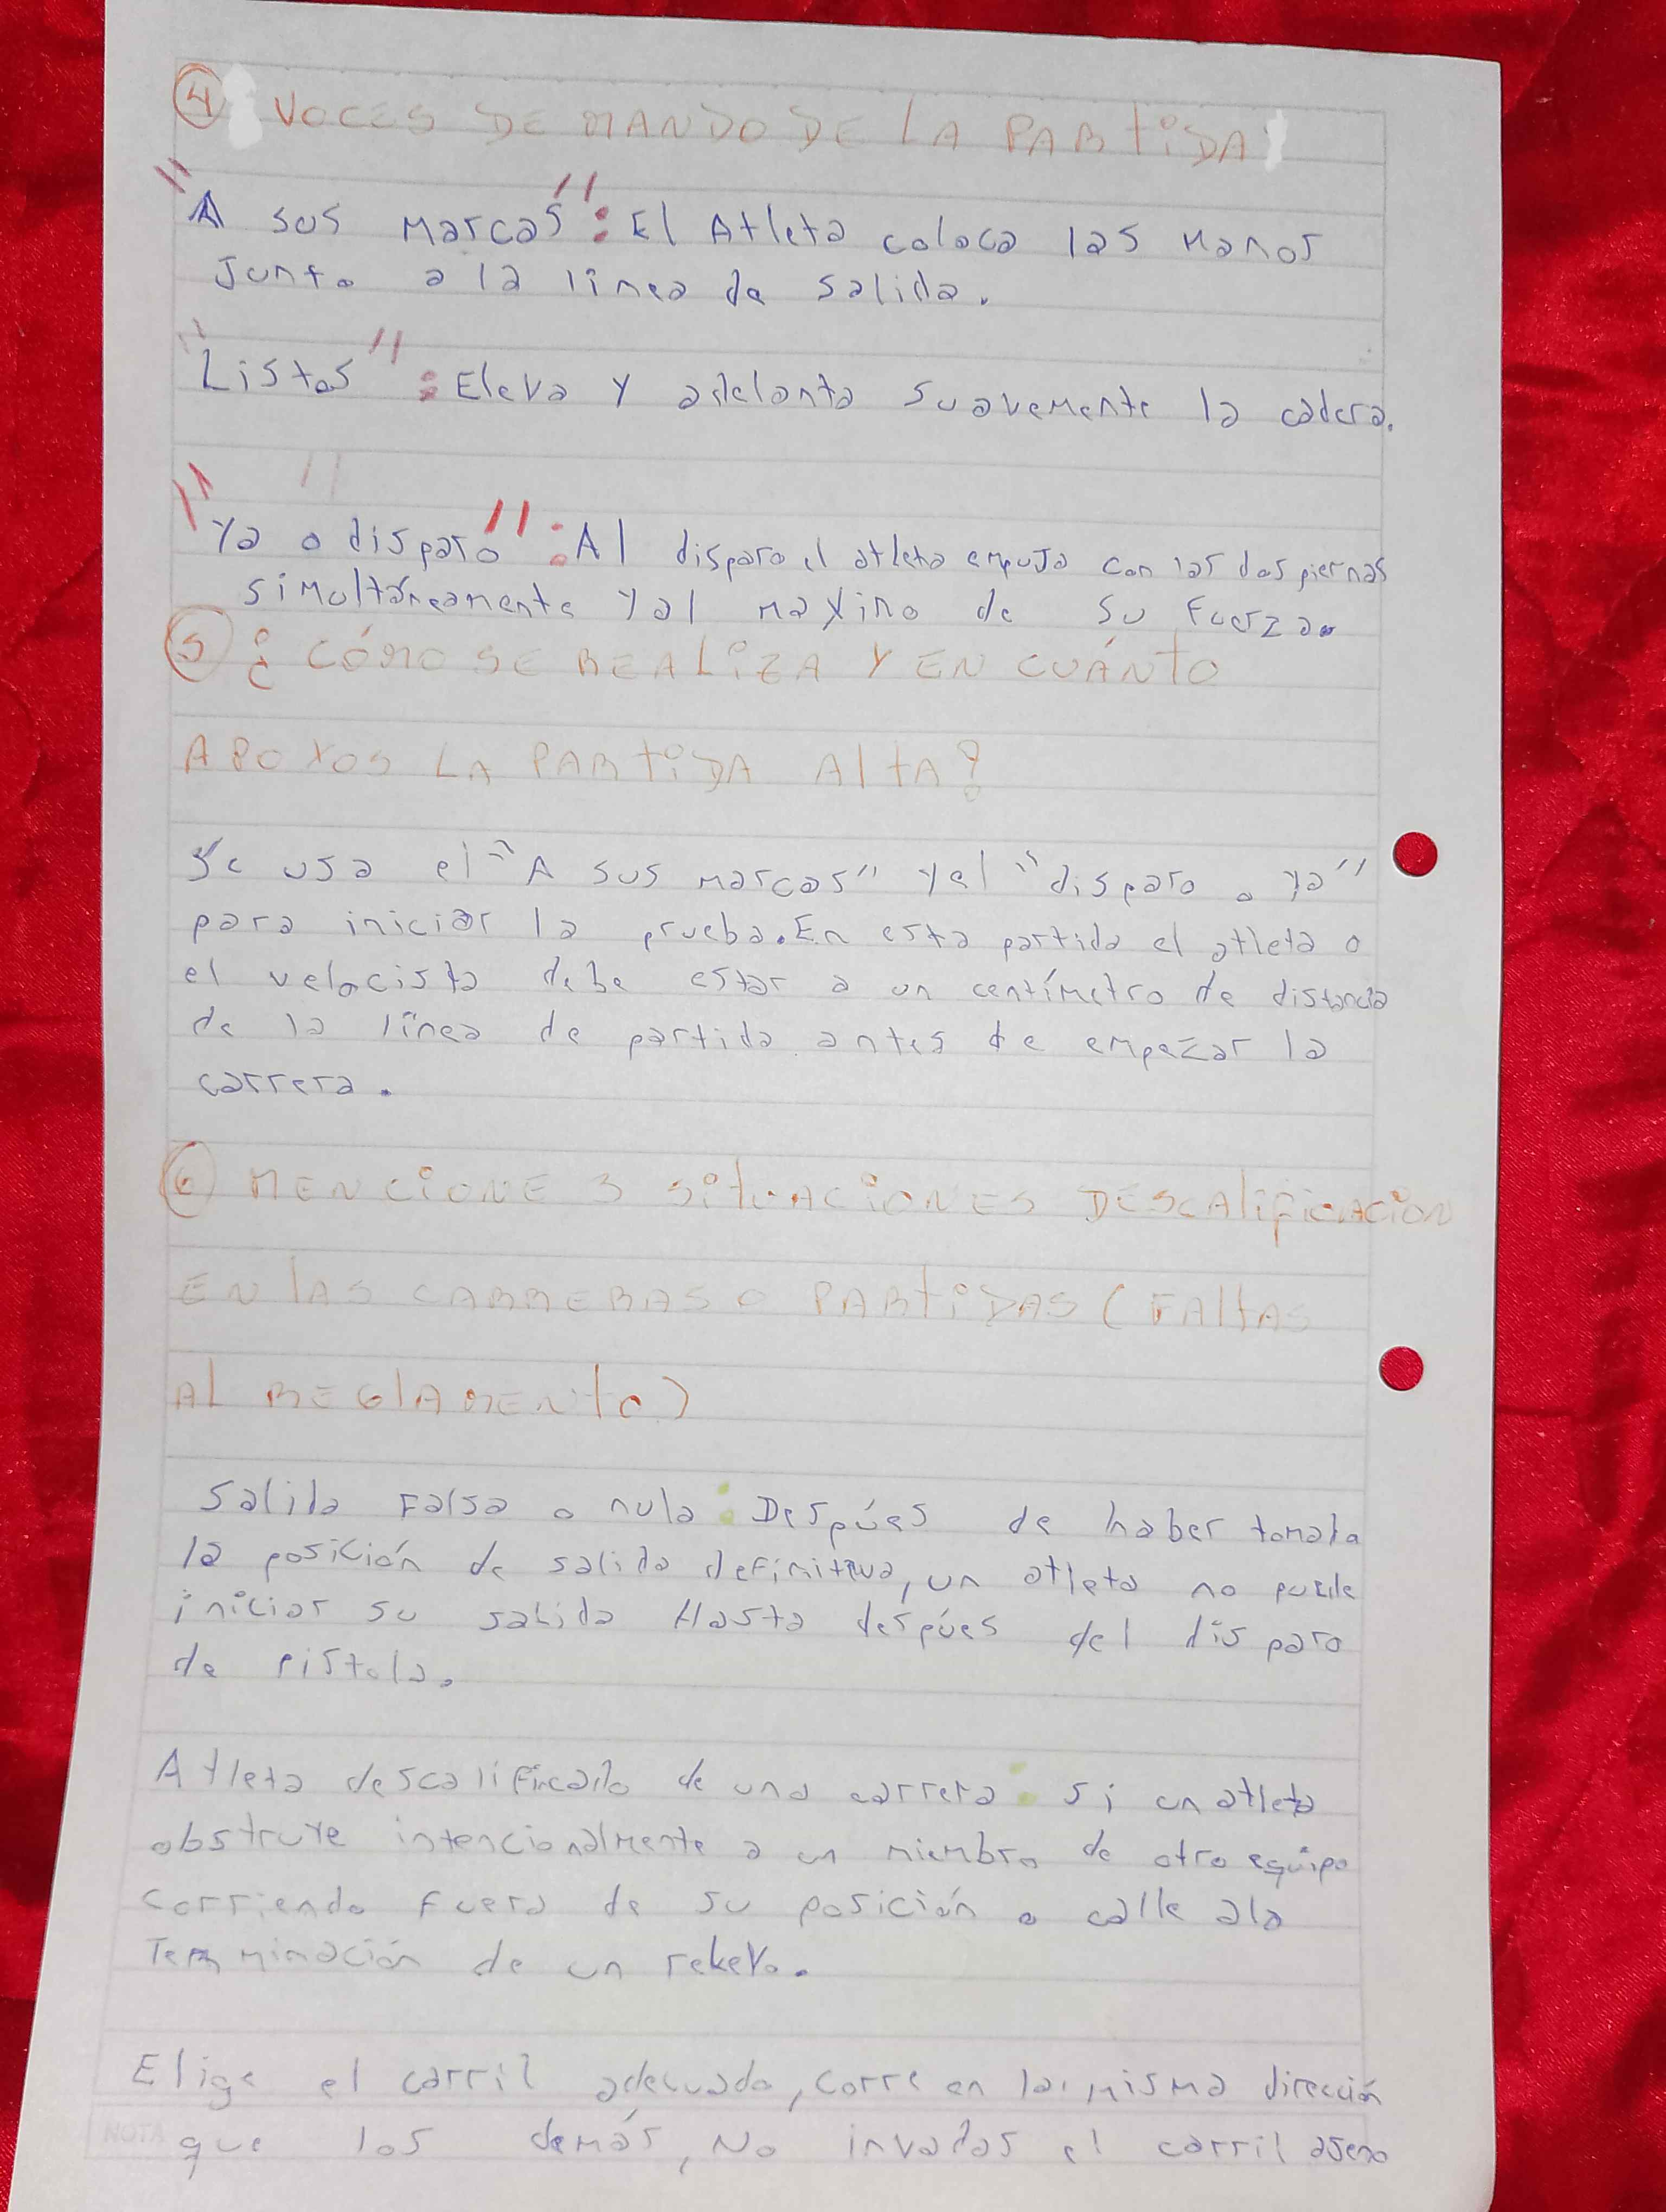 4 VOCES DE MANDO DE LA PARTIDA
"A sus Marcas": El Atleta coloca las Manos
Junto a la línea de salida.
"Listos": Eleva y adelanta suavemente la cadera.
"Ya o disparo": Al disparo el atleta empuja con las dos piernas
simultáneamente y al maximo de su fuerza.
5 ¿CÓMO SE REALIZA Y EN CUÁNTO
APOYOS LA PARTIDA ALTA?
Se usa el "A sus marcas" y el "disparo o ya"
para iniciar la prueba. En esta partida el atleta o
el velocista debe estar a un centímetro de distancia
de la línea de partida antes de empezar la
carrera.
6 MENCIONE 3 SITUACIONES DESCALIFICACION
EN LAS CARRERAS O PARTIDAS (FALTAS
AL REGLAMENTO)
Salida Falsa o nula: Despúes de haber tomada
la posición de salida definitiva, un atleta no puede
iniciar su salida Hasta despúes del disparo
de pistola.
Atleta descalificado de una carrera: si un atleta
obstruye intencionalmente a un miembro de otro equipo
corriendo fuera de su posición o calle ala
Terminación de un relevo.
Elige el carril adecuado, corre en la misma dirección
NOTA
que los demás, No invadas el carril ageno